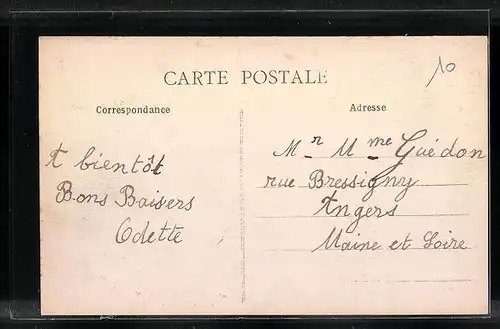 10
CARTE POSTALE
Correspondance
A bientôt
Bons Baisers
Odette
Adresse
Mr Mme Guédon
rue Bressigny
Angers
Maine et Loire